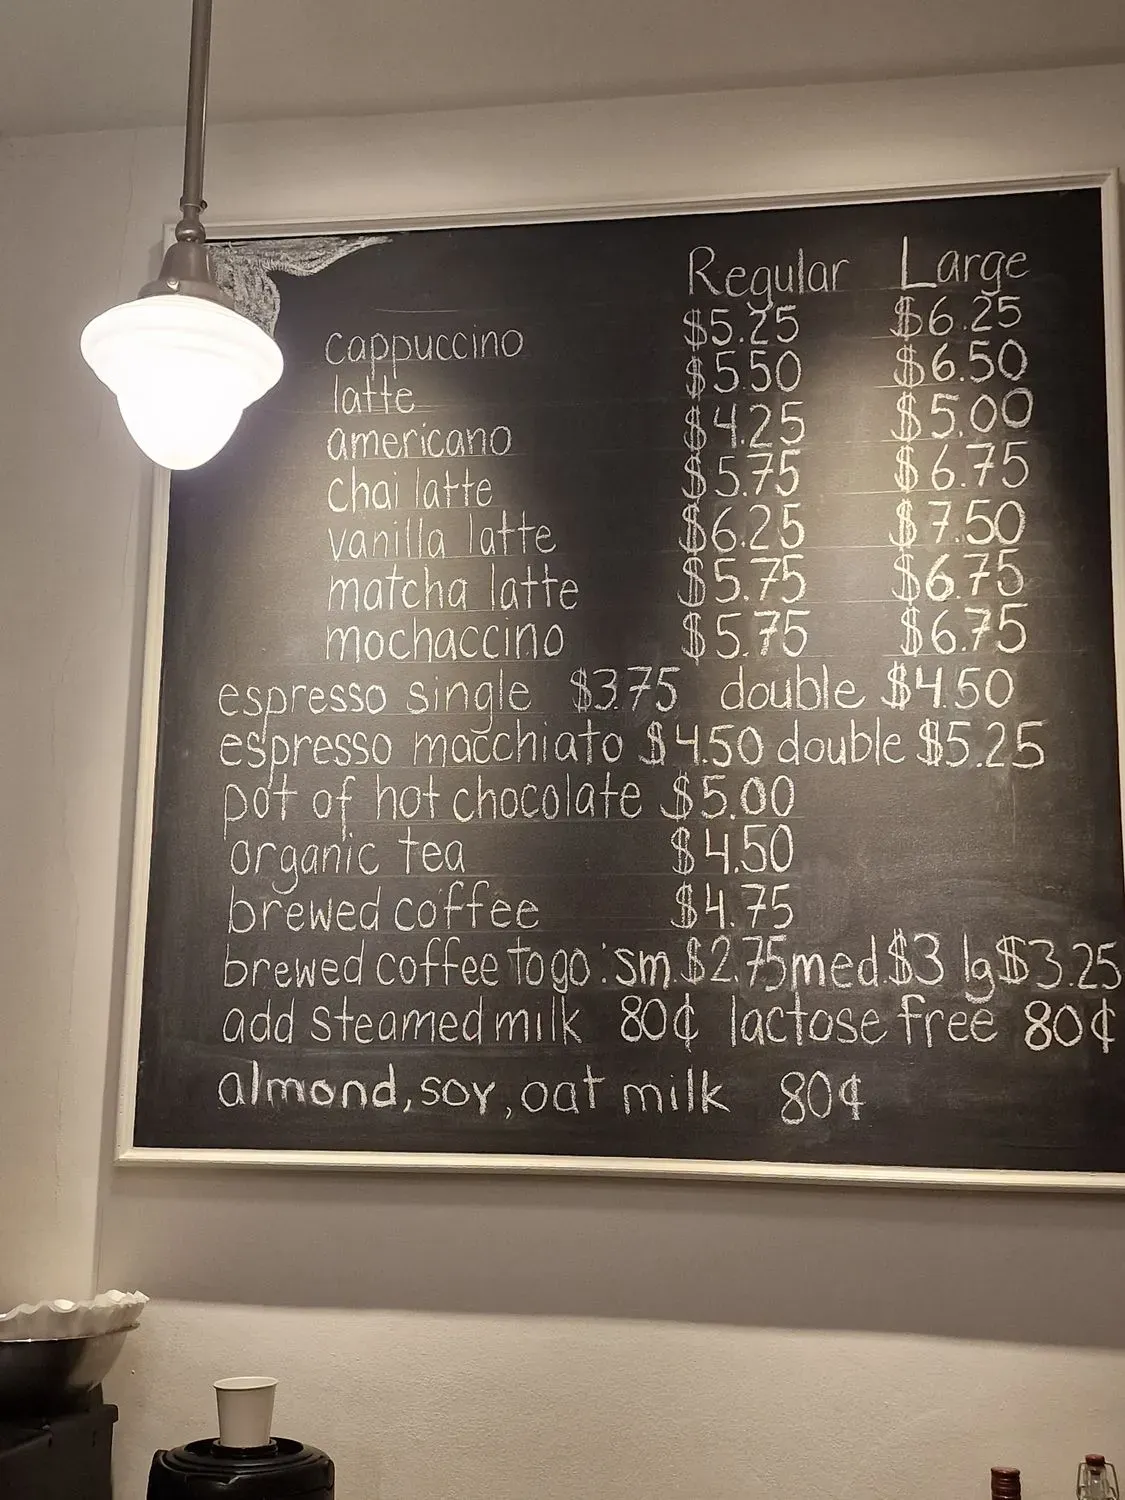 Regular Large
cappuccino $5.25 $6.25
latte $5.50 $6.50
americano $4.25 $5.00
chai latte $5.75 $6.75
vanilla latte $6.25 $7.50
matcha latte $5.75 $6.75
mochaccino $5.75 $6.75
espresso single $3.75 double $4.50
espresso macchiato $4.50 double $5.25
pot of hot chocolate $5.00
organic tea $4.50
brewed coffee $4.75
brewed coffee to go: sm. $2.75 med. $3 lg $3.25
add steamed milk 80¢ lactose free 80¢
almond, soy, oat milk 80¢